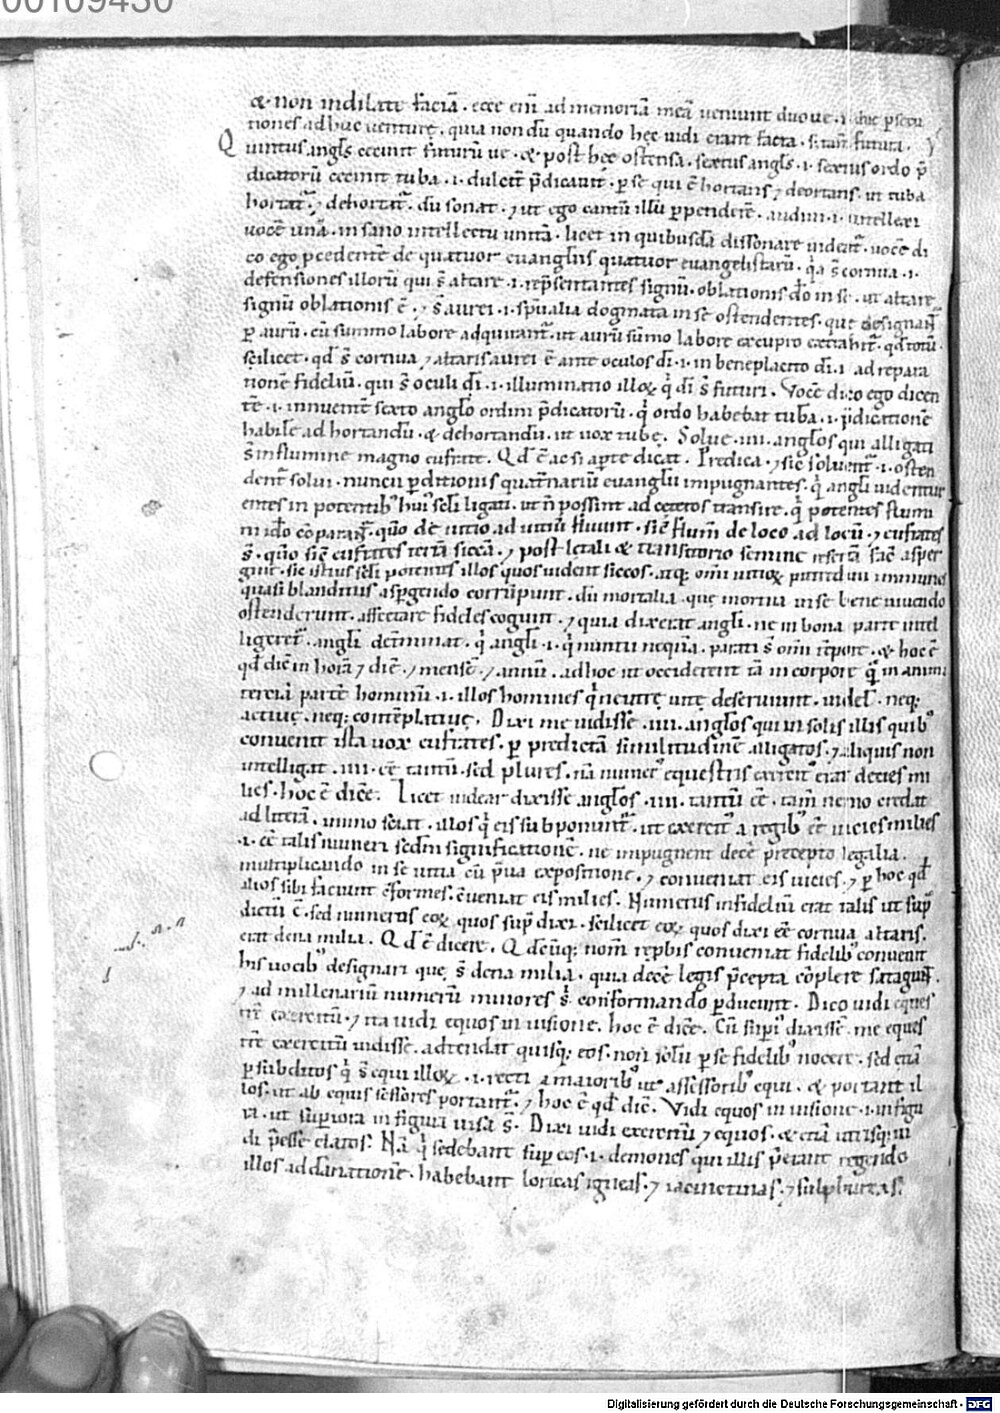 00109430
& non indilate faciā. ecce em̄ ad memoriā meā ueniunt duo ue. i. due ꝑsecu
tiones adhuc uenturę. quia non dū quando hęc uidi erant facta. s; tam̄ futura.
Quintus angl̄s cecinit futurū ue. & post hęc ostensa. sextus angl̄s. i. sextus ordo p̄
dicatorū cecinit tuba. i. dulcit̄ p̄dicauit. ꝑ se qui ē hortans ⁊ dehortans. ut tuba
hortat̄. ⁊ dehortat̄. dū sonat. ⁊ ut ego cantū illū ꝑpenderē. audiui. i. intellexi
uocē unā. in sano intellectu unitā. licet in quibusdā dissonare uideat̄. uocē di
co ego p̄cedentē de quatuor euangliis quatuor euangelistarū. q̄a s̄ cornua. i.
defensiones illorū qui s̄ altare. i. rep̄sentantes signū. oblationis dō in se. ut altare
signū oblationis ē. ⁊ s̄ aurei. i. sp̄ualia dogmata in se ostendentes. que designant̄
ꝑ aurū. cū summo labore adquirant̄. ut aurū sūmo labore ex cupro extrahit̄. qđ totū
scilicet. qđ s̄ cornua ⁊ altaris aurei ē ante oculos dī. i. in beneplacito dī. i. ad repara
tionē fideliū. qui s̄ oculi dī. i. illuminatio illoꝝ q̇ dī s̄ futuri. Vocē dico ego dicen
tē. i. innuentē sexto anglo ordini p̄dicatorū. q̇ ordo habebat tubā. i. p̄dicationē
habilē ad hortandū. & dehortandū. ut uox tubę. Solue. iiii. anglos qui alligati
s̄ in flumine magno eufrate. Qđ ē ac si aꝑte dicat. Predica. ⁊ sic soluent̄. i. osten
dent̄ solui. nuncii ꝑditionis quat̄nariū euangliū impugnantes. q̇ angli uidentur
entes in potentib; hui; sc̄li ligati. ut n̄ possint ad ceteros transire. q̇ potentes flumi
ni idō cōparant̄. quō de uitio ad uitiū fluunt. sic flum̄ de loco ad locū. ⁊ eufrates
s̄. quō sic eufrates terrā siccā. ⁊ post letali & transitorio semine resertā facit asper
gine. sic istius sc̄li potentes illos quos uident siccos. atq; omī uitioꝝ
quasi blanditiis asꝑgendo corrūpunt. dū mortalia. que mortua in se bene uiuendo
ostenderunt. affectare fideles cogunt. ⁊ quia dixerat angli. ne in bona parte intel
ligeret̄. angli det̄minat. q̇ angli. i. q̇ nuntii nequā. parati s̄ omī tempore. & hoc ē
qđ dic̄ in horā ⁊ diē. ⁊ mensē. ⁊ annū. ad hoc ut occiderent tā in corpore quā in anima
terciā partē hominū. i. illos homines q̇ neutrę uitę deseruiunt. uidel. neq;
actiuę. neq; contēplatiuę. Dixi me uidisse. iiii. anglos qui in solis illis quib;
conuenit ista uox eufrates. ꝑ predictā similitudinē alligatos. ⁊ aliquis non
intelligat. iiii. ēē tantū. sed plures. nā numer; equestris exercit; erat decies mi
lies. hoc ē dic̄e. Licet uidear dixisse anglos. iiii. tantū ēē. tam̄ nemo credat
ad literā. immo sciat. illos q̇ eis subponunt̄. ut exercit; a regib; ēē uicies milies
.i. ēē talis numeri secdm̄ significationē. ne impugnent decē precepto legalia.
multiplicando in se uitia cū p̄ua expositione. ⁊ conueniat eis uicies. ⁊ ꝑ hoc qđ
alios sibi faciunt cōformes. cōueniat eis milies. Numerus infideliū erat talis ut supͣ
dictū ē. sed numerus eoꝝ quos supͣ dixi. scilicet eoꝝ quos dixi ēē cornua altaris.
erat dena milia. Qđ ē dicere. Qđcūq; nom̄ rep̄bis conueniat fidelib; conuenit
his uocib; designari que s̄ dena milia. quia decē legis p̄cepta cōplere satagunt̄.
⁊ ad millenariū numerū minores s̄ conformando ꝑducunt. Dico uidi eques
trē exercitū. ⁊ ita uidi equos in uisione. hoc ē dic̄e. Cū supi; dixissē me eques
trē exercitū uidisse. adtendat quisq; eos. non solū ꝑ se fidelib; nocere. sed etiā
ꝑ subditos q̇ s̄ equi illoꝝ. i. recti a maiorib; ut assessorib; equi. & portant il
los. ut ab equis sessores portant̄. ⁊ hoc ē qđ dic̄. Vidi equos in uisione. i. in figu
ra. ut superiora in figura uisa s̄. Dixi uidi exercitū ⁊ equos. & etiā utrisq; ui
di p̄esse elatos. Nā q̇ sedebant sup eos. i. demones qui illis p̄erant regendo
illos ad dānationē. habebant loricas igneas. ⁊ iacinctinas. ⁊ sulphureas.
Digitalisierung gefördert durch die Deutsche Forschungsgemeinschaft - DFG